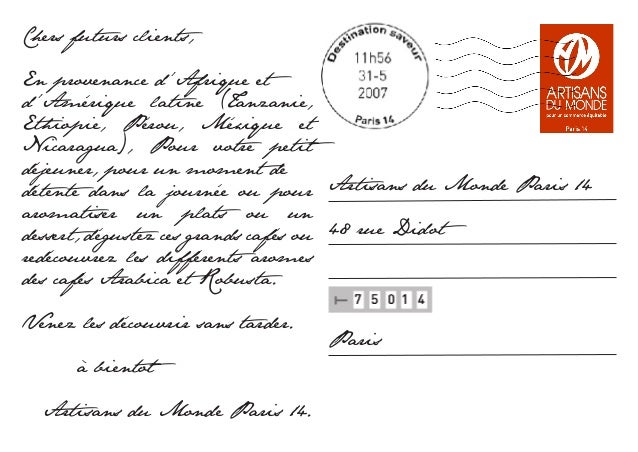 Chers futurs clients,
En provenance d'Afrique et
d'Amérique latine (Tanzanie,
Ethiopie, Perou, Méxique et
Nicaragua), Pour votre petit
déjeuner, pour un moment de
détente dans la journée ou pour
aromatiser un plats ou un
dessert, dégustez ces grands cafés ou
redécouvrez les différents aromes
des cafés Arabica et Robusta.
Venez les découvrir sans tarder.
à bientot
Artisans du Monde Paris 14.
Destination saveur
11h56
31-5
2007
Paris 14
ARTISANS
DU MONDE
pour un commerce équitable
Paris 14
Artisans du Monde Paris 14
48 rue Didot
75014
Paris